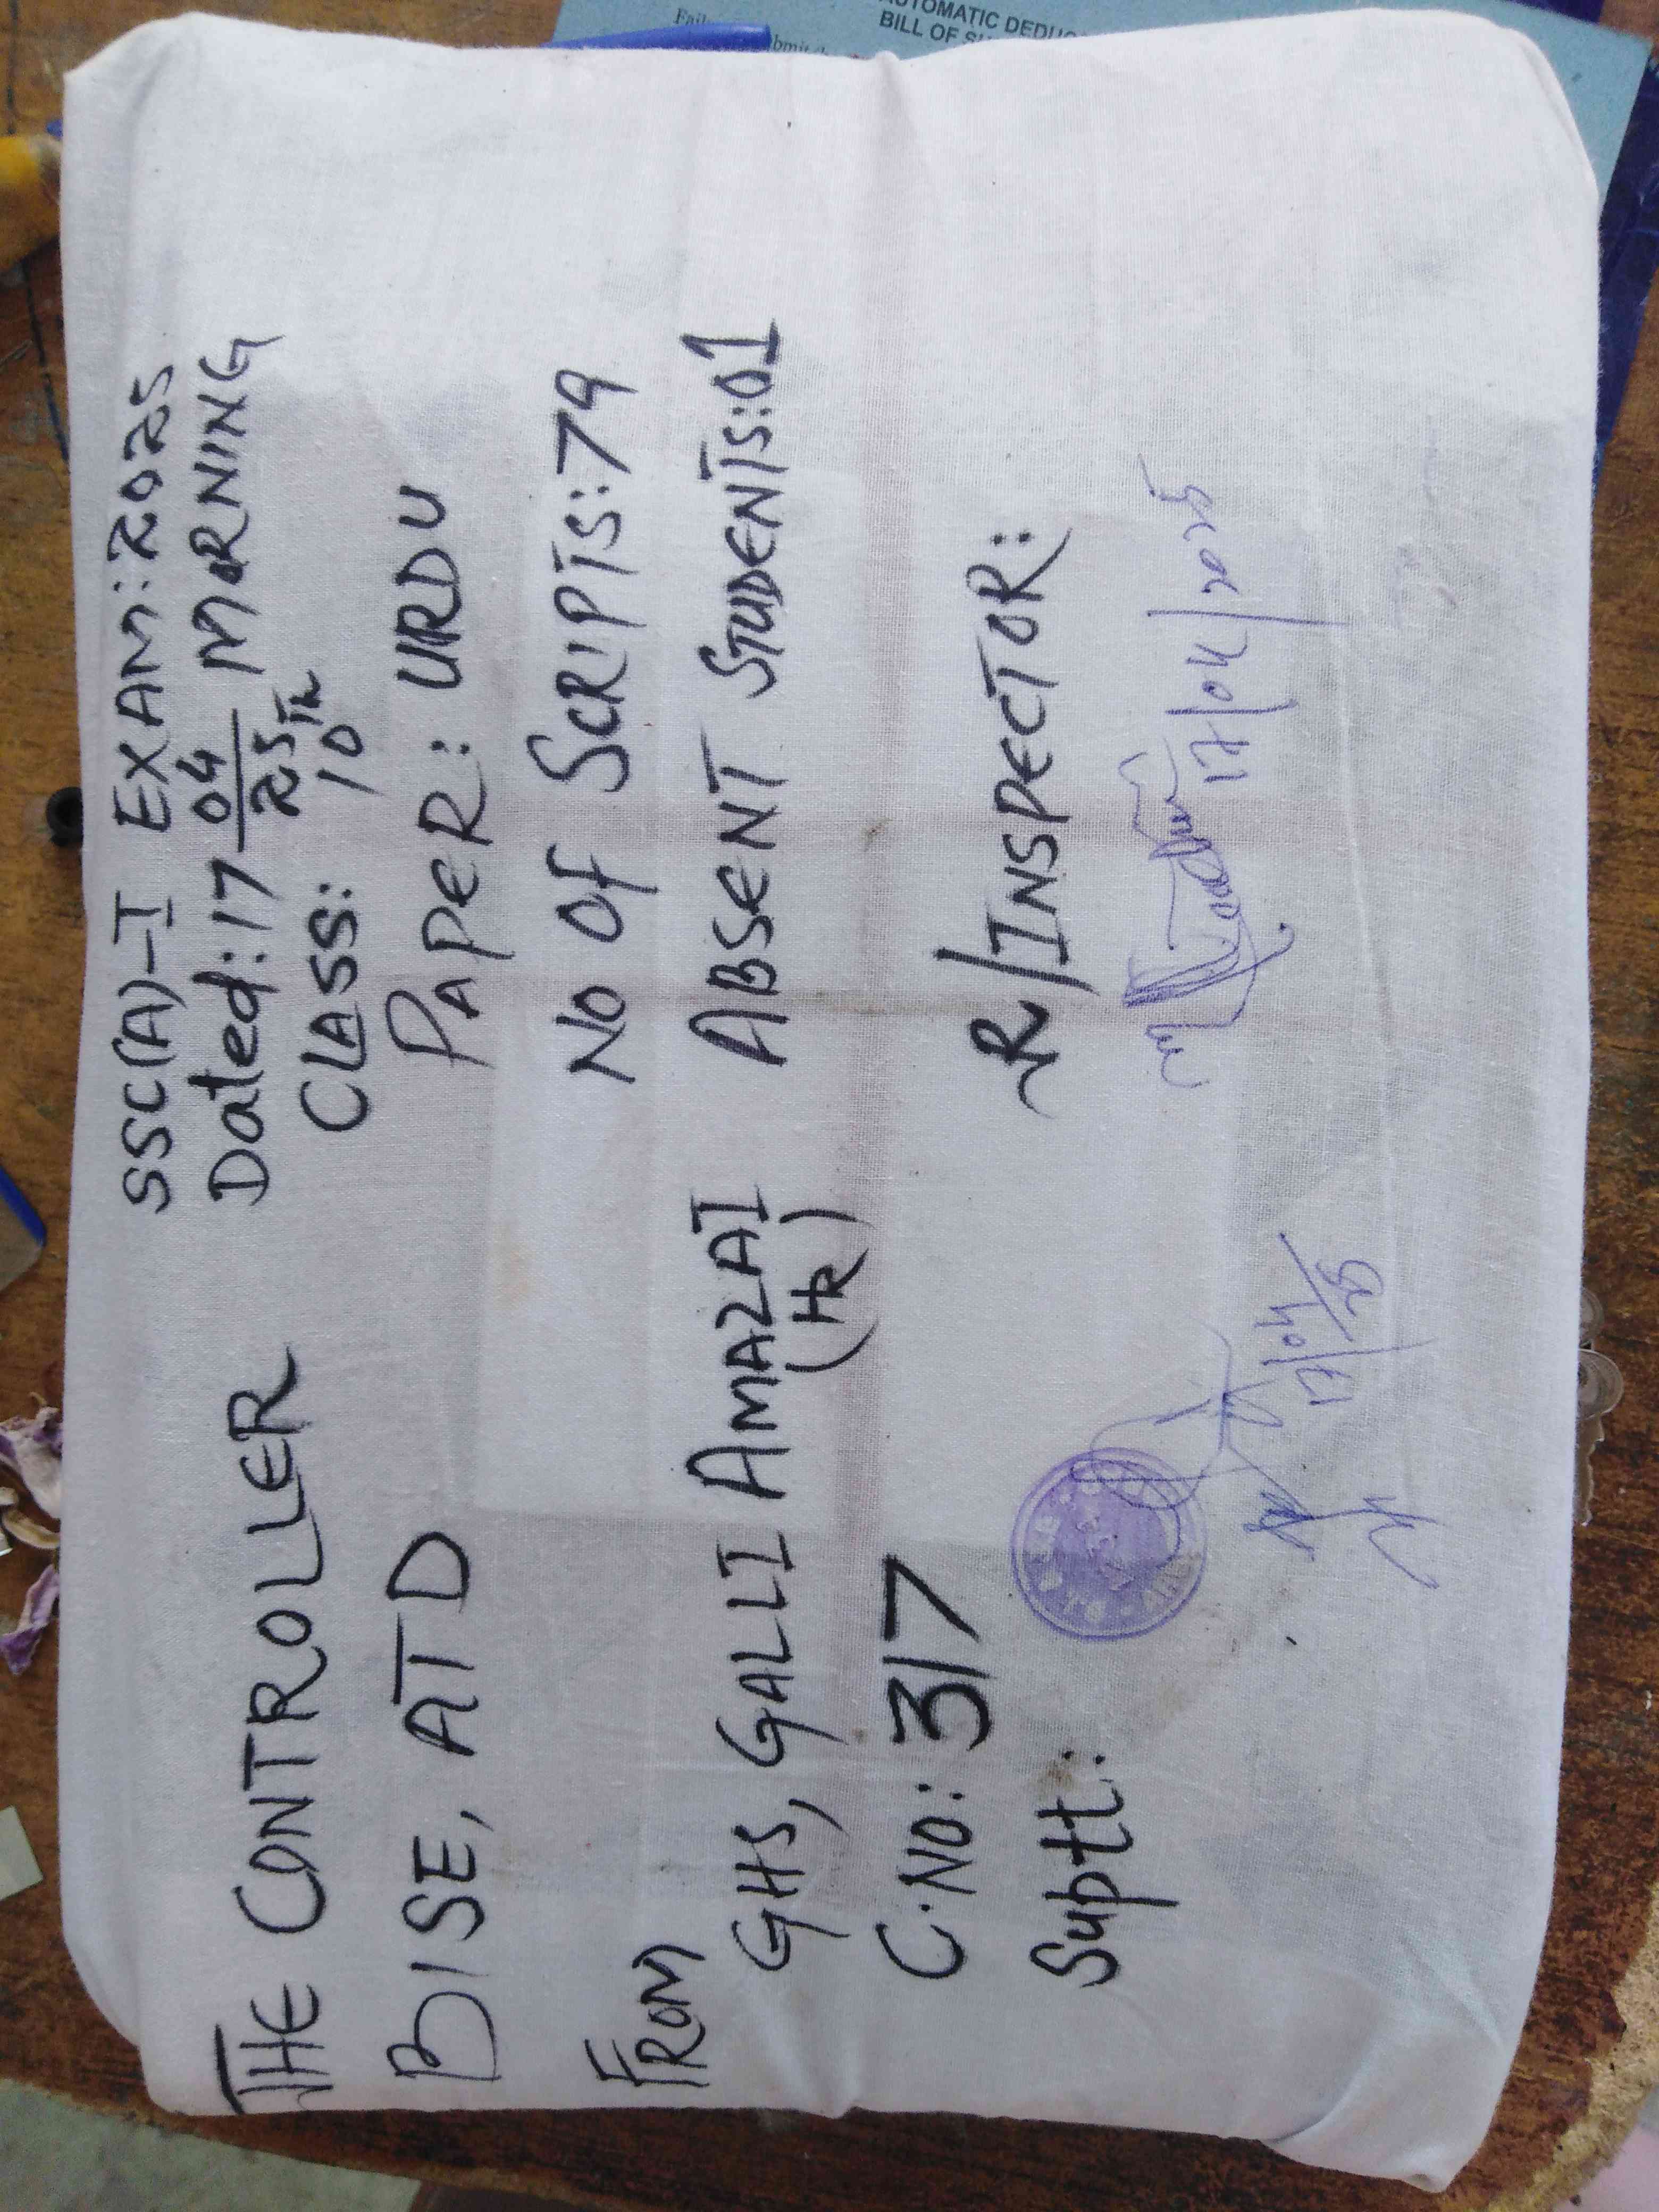 SSC(A)-I EXAM:2025
Dated:17 04/25 MORNING
CLASS: 10th
THE CONTROLLER
PAPER: URDU
BISE, ATD
NO OF SCRIPTS:79
FROM
ABSENT STUDENTS:01
GHS, GALLI AMAZAI
(HR)
C.NO: 317
R/INSPECTOR:
Suptt:
17/04/2025
17/04/25
AUTOMATIC DEDUC
BILL OF